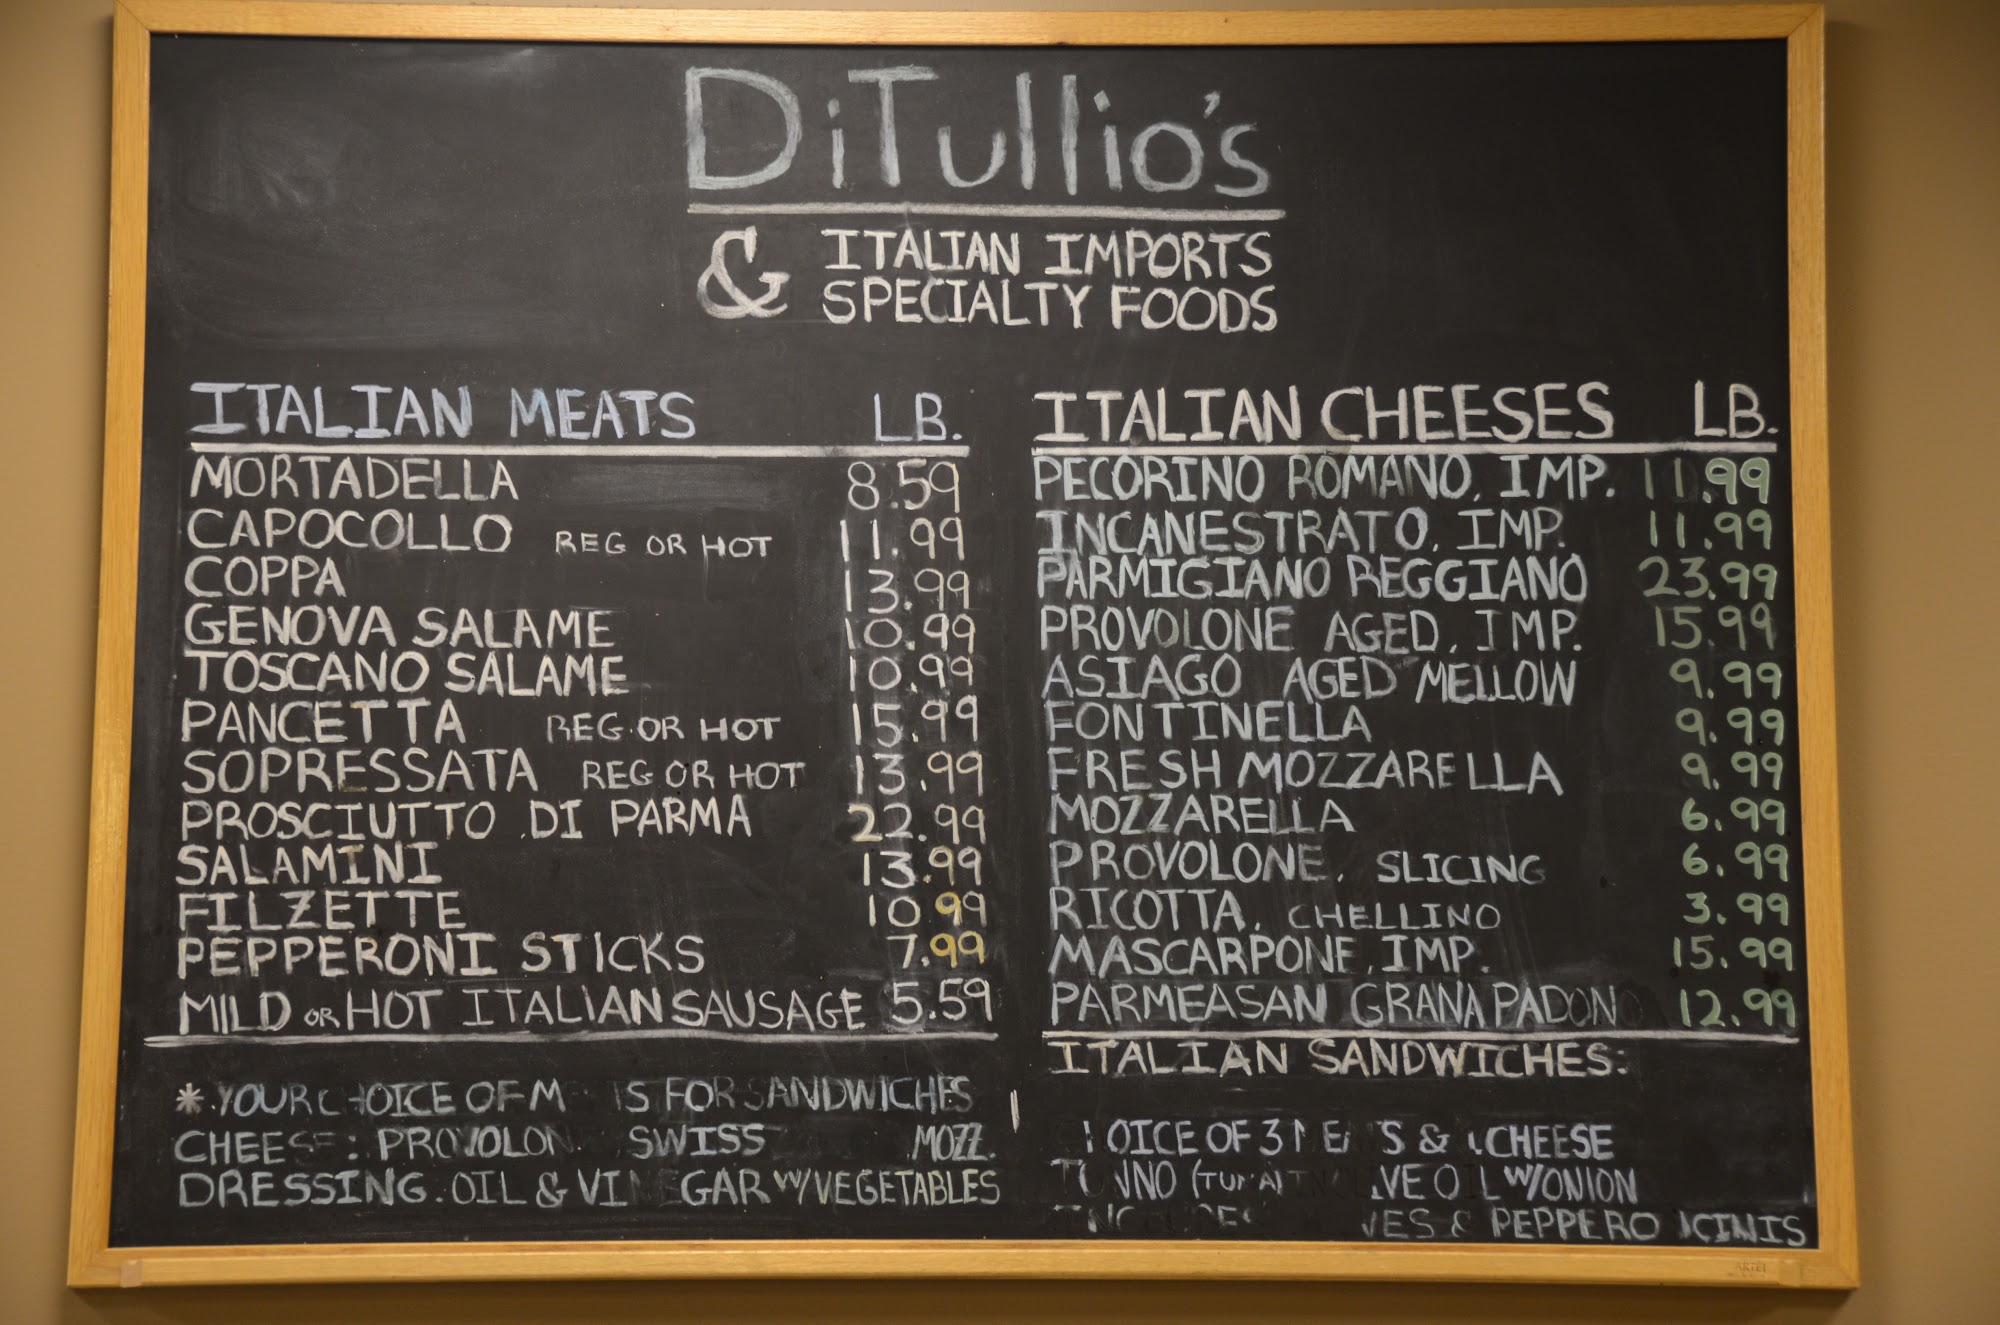 DiTullio's
& ITALIAN IMPORTS
SPECIALTY FOODS
ITALIAN MEATS LB.
MORTADELLA 8.59
CAPOCOLLO REG OR HOT 11.99
COPPA 13.99
GENOVA SALAME 10.99
TOSCANO SALAME 10.99
PANCETTA REG. OR HOT 15.99
SOPRESSATA REG OR HOT 13.99
PROSCIUTTO DI PARMA 22.99
SALAMINI 13.99
FILZETTE 10.99
PEPPERONI STICKS 7.99
MILD OR HOT ITALIAN SAUSAGE 5.59
* YOUR CHOICE OF FOR SANDWICHES
CHEESE: SWISS MOZZ.
DRESSING. OIL & W/VEGETABLES
ITALIAN CHEESES LB.
PECORINO ROMANO, IMP. 11.99
INCANESTRATO, IMP. 11.99
PARMIGIANO REGGIANO 23.99
PROVOLONE AGED, IMP. 15.99
ASIAGO AGED MELLOW 9.99
FONTINELLA 9.99
FRESH MOZZARELLA 9.99
MOZZARELLA 6.99
PROVOLONE, SLICING 6.99
RICOTTA, CHELLINO 3.99
MASCARPONE, IMP. 15.99
PARMEASAN GRANA PADONO 12.99
ITALIAN SANDWICHES:
OF 3 & CHEESE
W/ONION
& PEPPERO